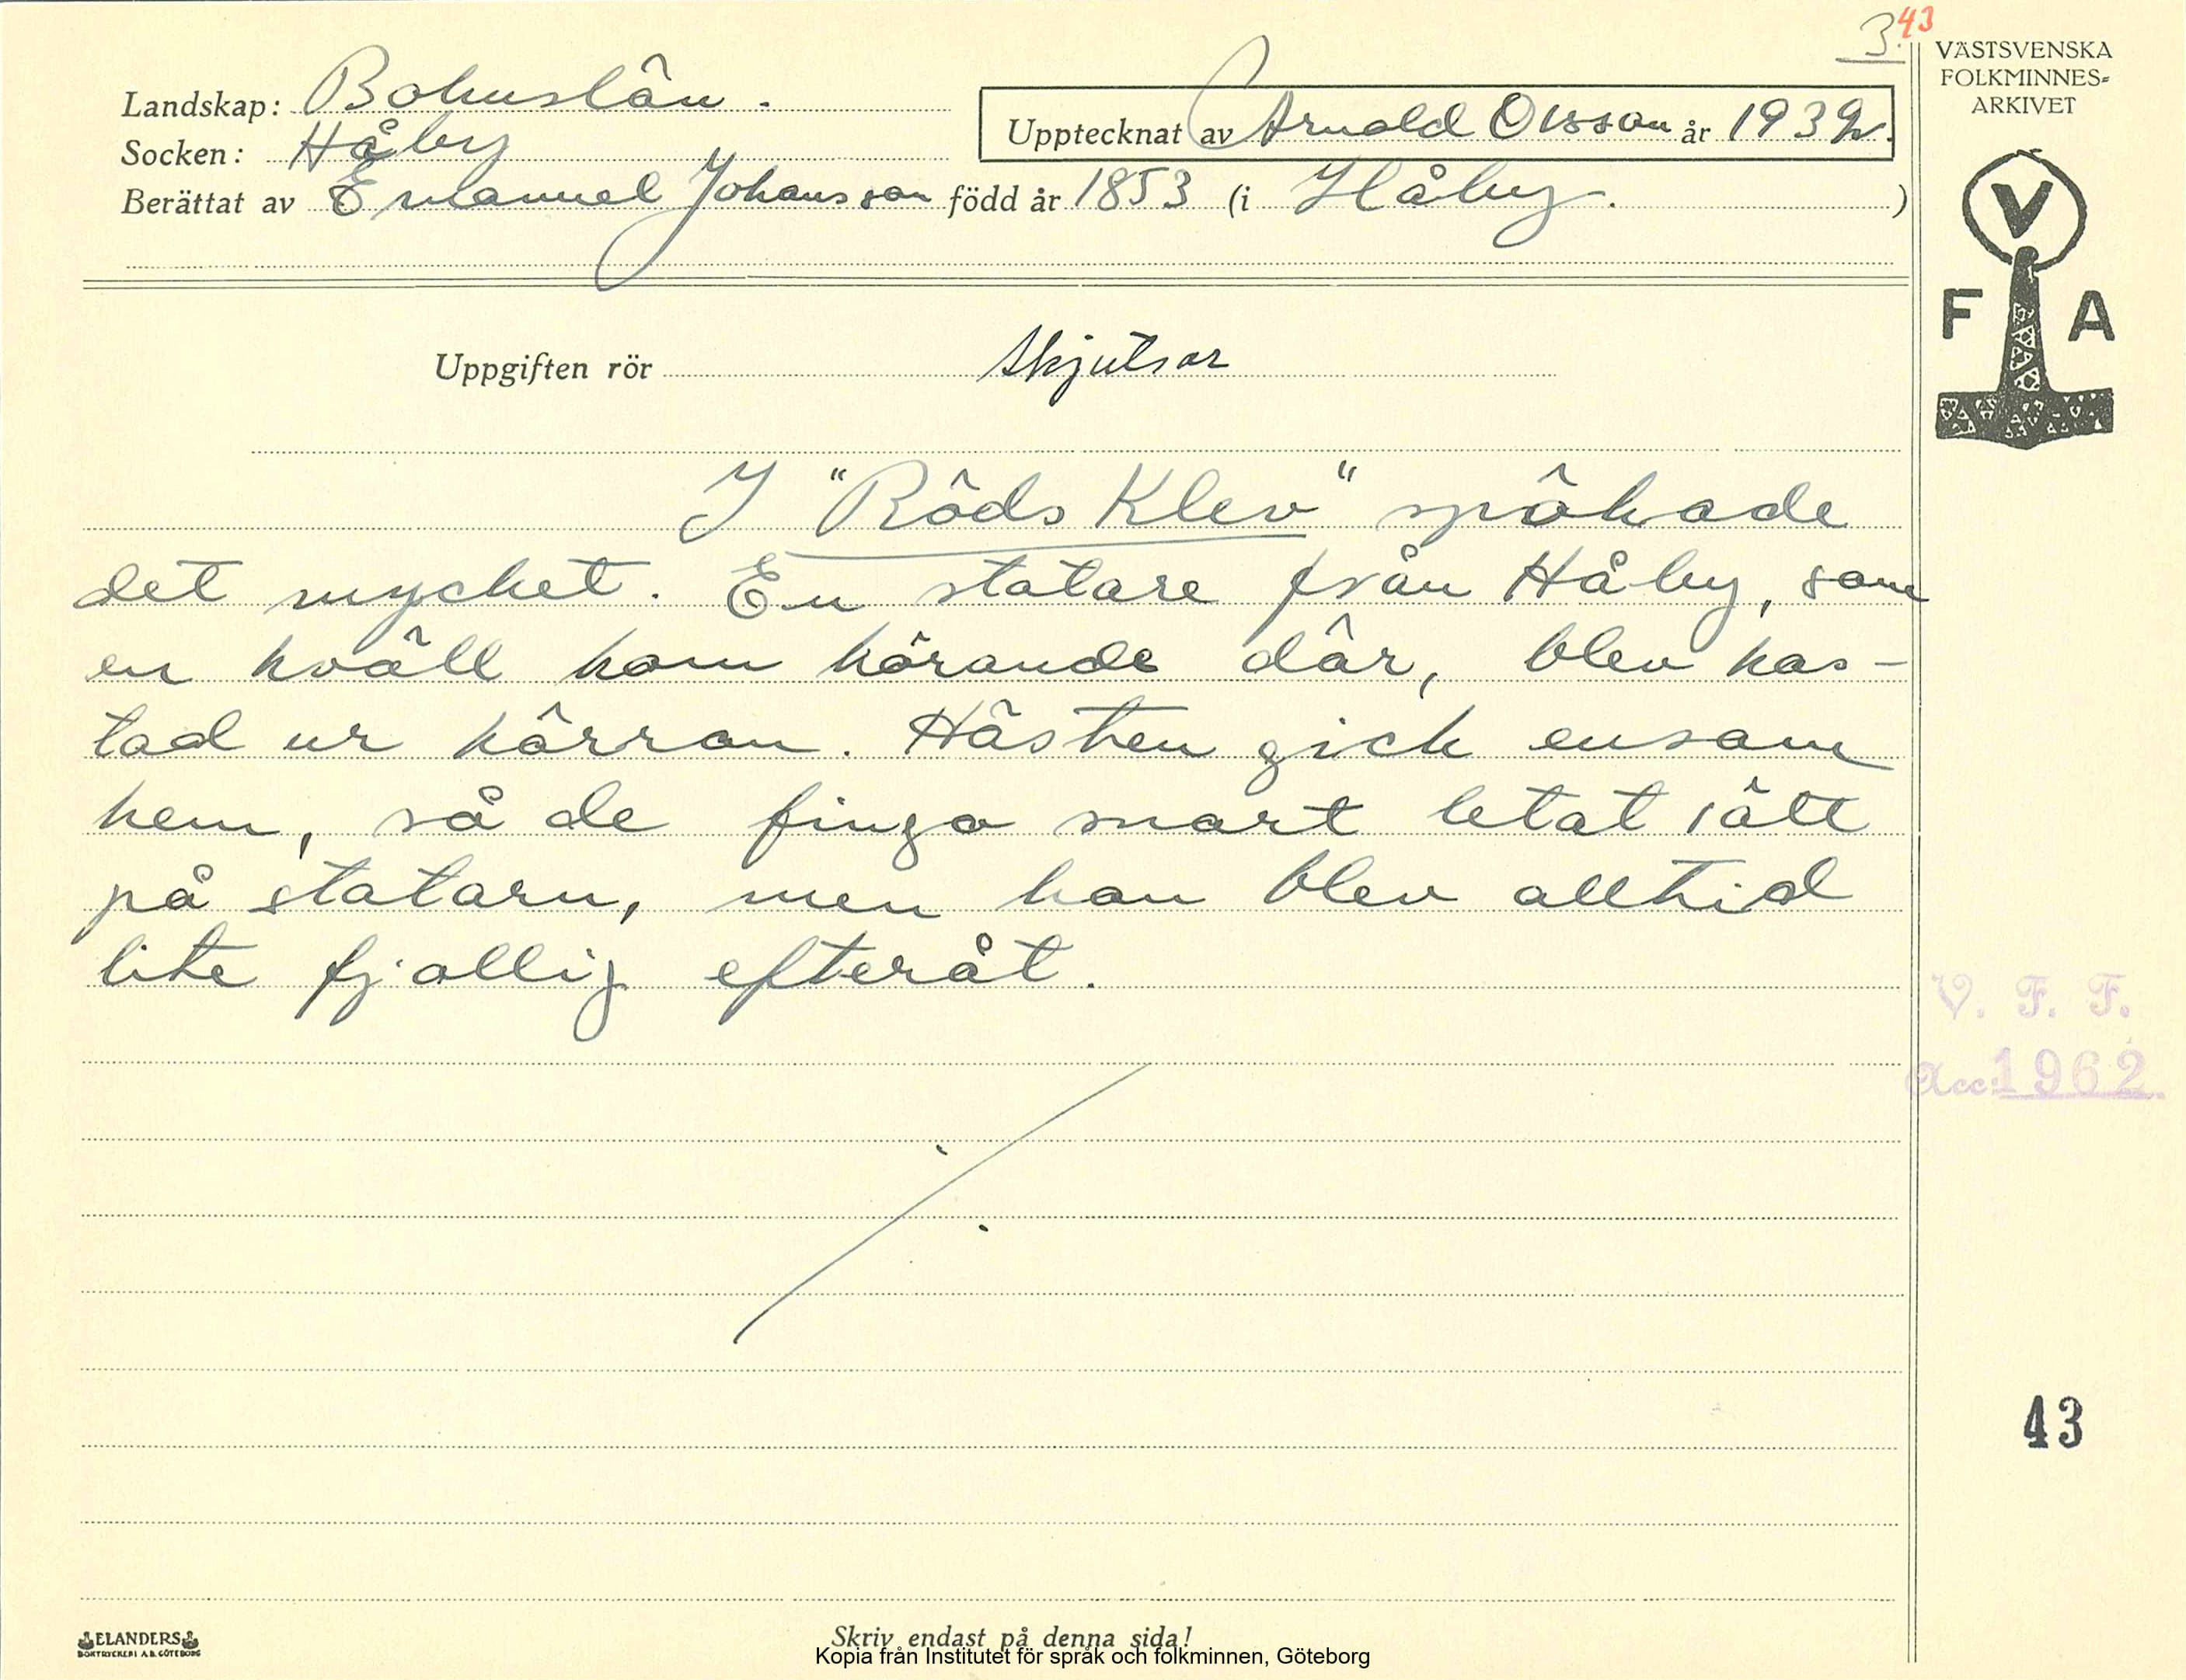 3. 43
VÄSTSVENSKA
FOLKMINNES=
ARKIVET
Landskap: Bohuslän.
Socken: Håby
Upptecknat av Arnold Olsson år 1932.
Berättat av Emanuel Johansson född år 1853 (i Håby. )
V
F A
Uppgiften rör skjutsar
I "Röds Klev" spökade
det mycket. En statare från Håby, som
en kväll kom körande där, blev kas-
tad ur kärran. Hästen gick ensam
hem, så de fingo snart letat rätt
på statarn, men han blev alltid
lite fjollig efteråt.
V. F. F.
Acc. 1962
43
ELANDERS
BOKTRYCKERI A.B. GÖTEBORG
Skriv endast på denna sida!
Kopia från Institutet för språk och folkminnen, Göteborg